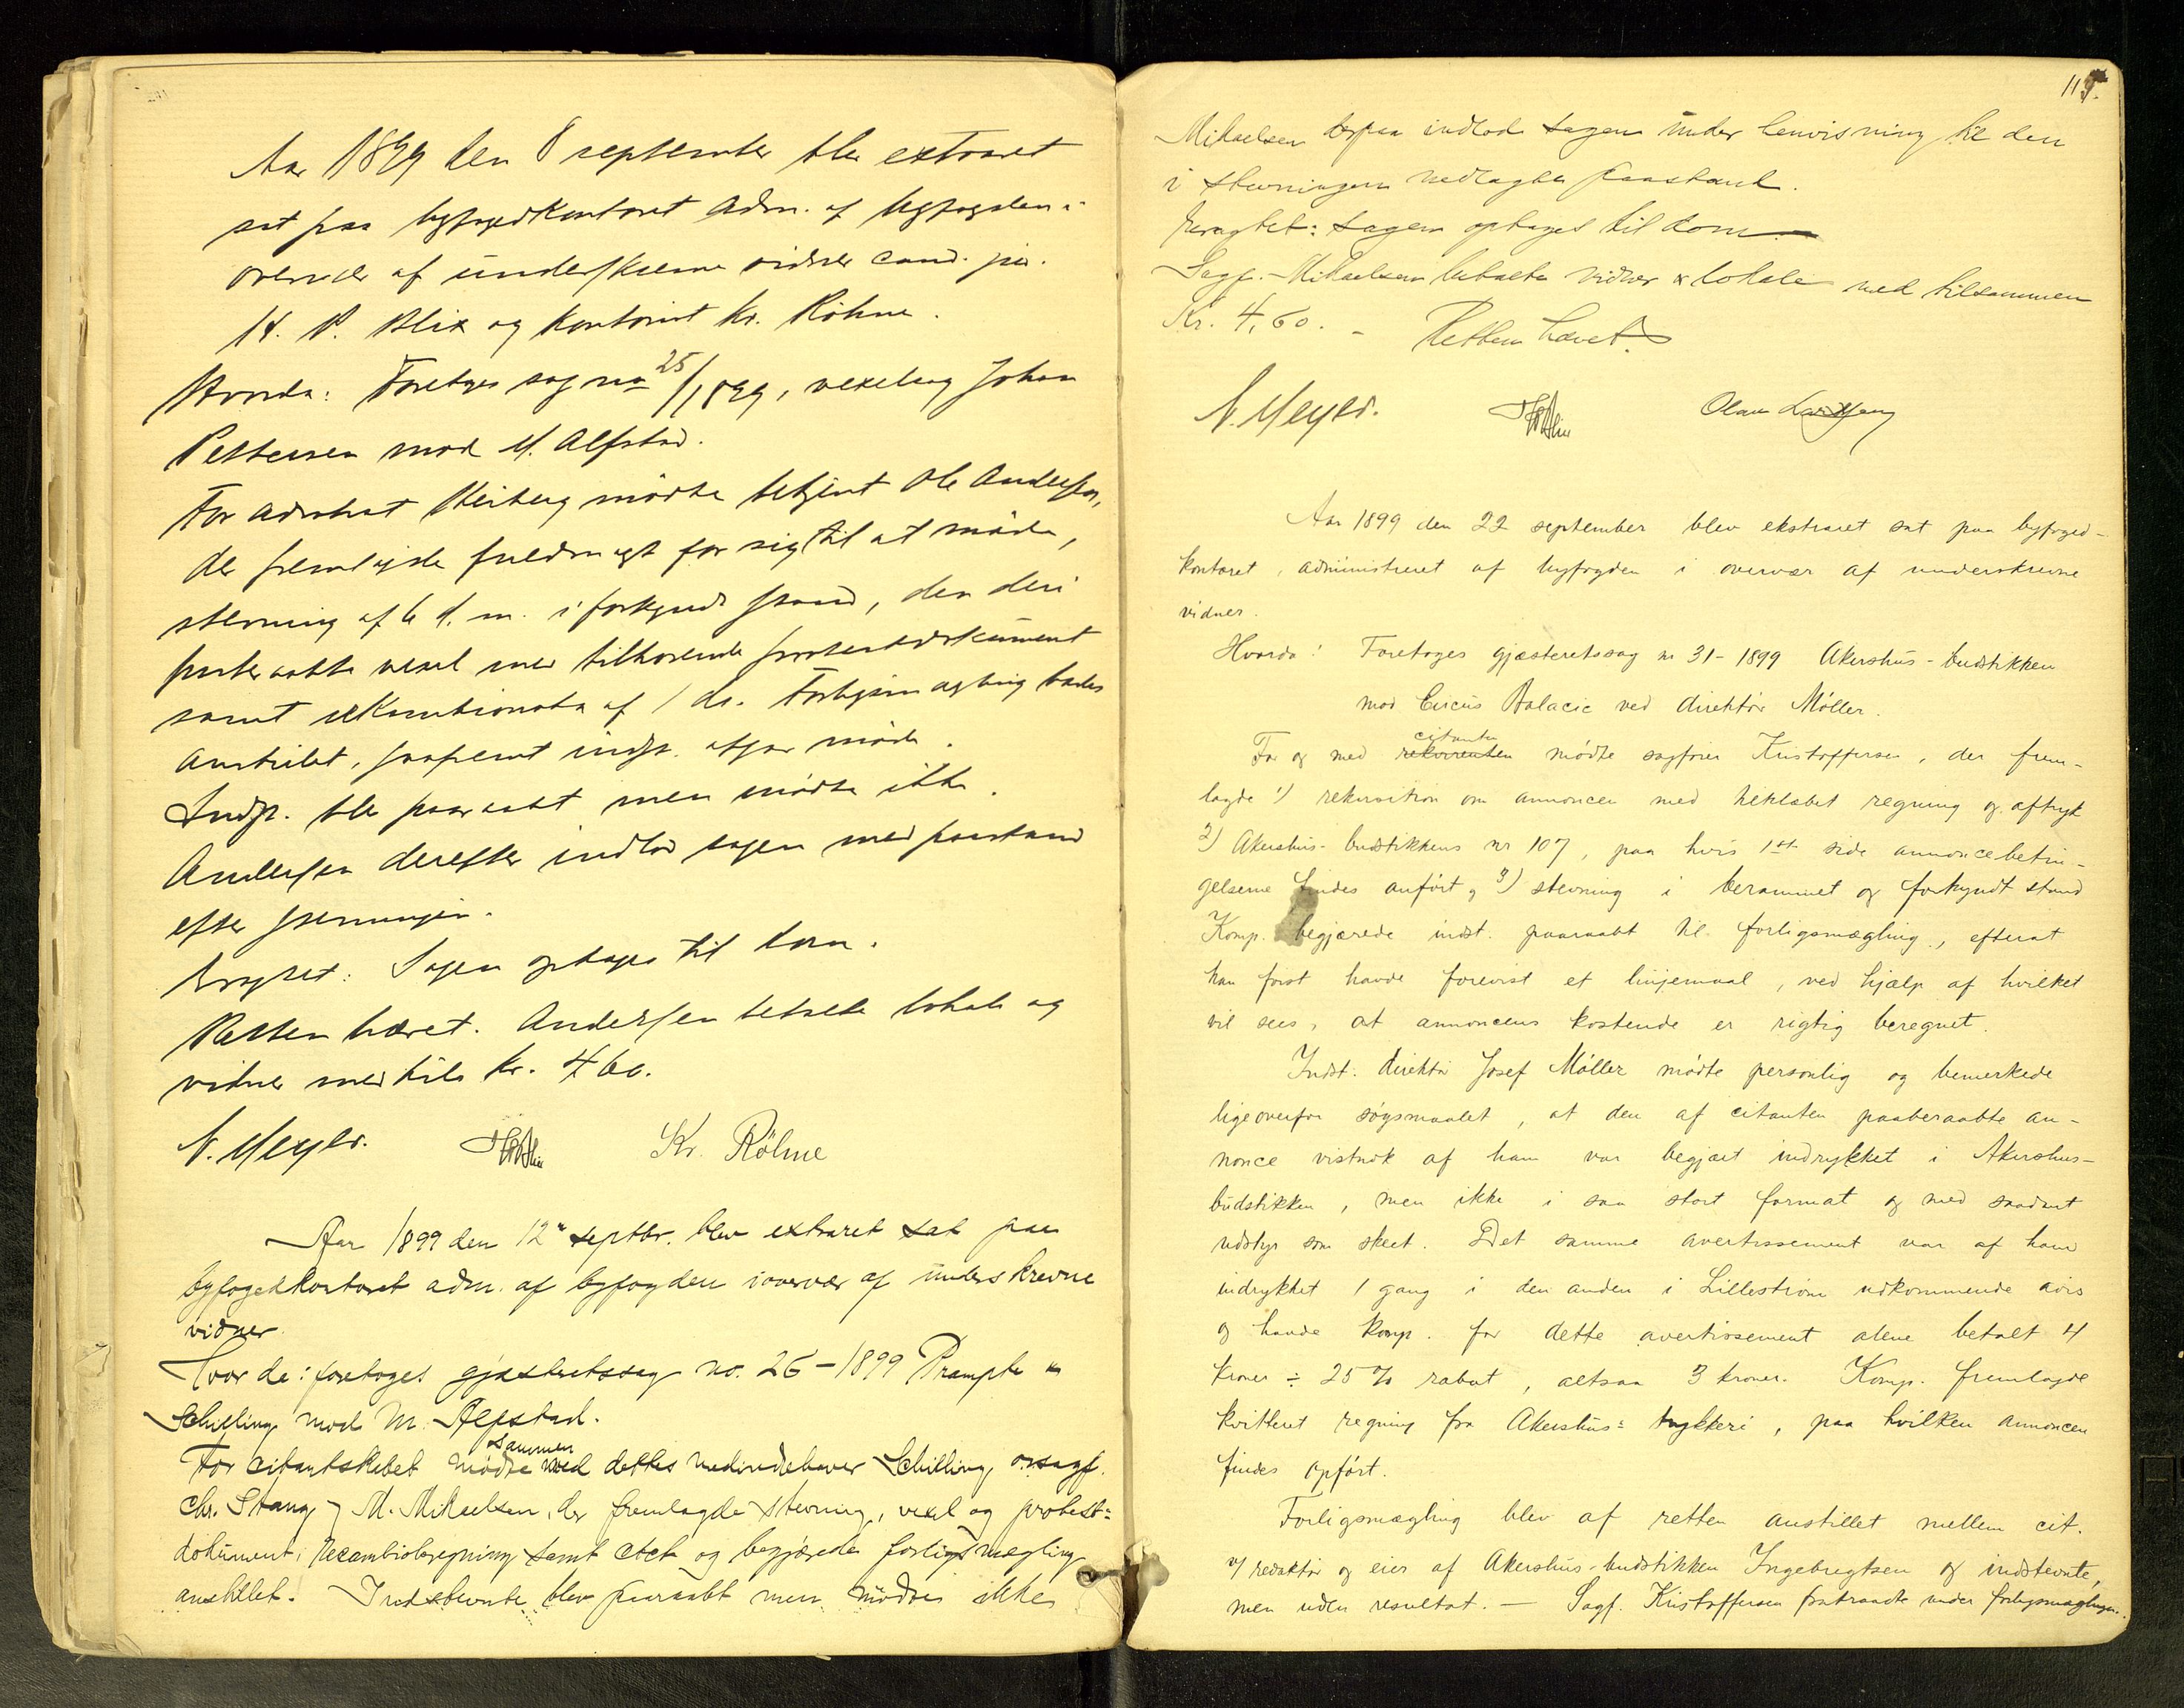 Aar 1899 den 8 september blev extraret
sat paa byfogedkontoret adm. af byfogden i
overvær af underskrevne vidner cand. jur.
H. P. Blix og kontorist Kr. Röhne.
Hvorda: Foretoges sag no 25/1899, vexelsag Johan
Pettersen mod M. Alfstad.
For advokat Heiberg mødte betjent Ole Andersen,
der fremlagde fuldmagt for sig til at møde,
stevning af 6 d. m. i forkyndt stand, den deri
paaberaabte vexel med tilhørende protestdokument
samt rekambionota af 1 ds. Forligsmægling bades
anstillet, saafremt indst. afgav møde.
Indst. blev paaraabt men mødte ikke.
Andersen derefter indlod sagen med paastand
efter stevningen.
Eragtet: Sagen optages til dom.
Retten hævet. Andersen betalte lokale og
vidner med tils. kr. 4 60.
N. Meyer. HPBlix Kr. Röhne
Aar 1899 den 12te septbr. blev extraret sat paa
byfogedkontoret adm. af byfogden i overvær af underskrevne
vidner.
Hvorda: foretoges gjæsteretssag no. 26 – 1899 Prampte &
Schilling mod M. Alfstad.
For citantskabet mødte sammen med dettes medindehaver Schilling, o.r.sagf.
Chr. Stang og M. Mikaelsen, der fremlagde stevning, vexel og protest=
dokument, recambioberegning samt og begjærede forligsmægling
anstillet. Indstevnte blev paaraabt men mødte ikke
115.
Mikaelsen derpaa indlod sagen under henvisning til den
i stevningen nedlagte paastand.
Eragtet: Sagen optages til dom.
Sagf. Mikaelsen betalte vidner & lokale med tilsammen
Kr. 4,60. – Retten hævet.
N. Meyer. HPBlix Olav
Aar 1899 den 22 september blev ekstraret sat paa byfoged-
kontoret, administreret af byfogden i overvær af underskrevne
vidner.
Hvorda: Foretoges gjæsteretssag nr 31 – 1899 Akershus-budstikken
mod Circus Balacic ved direktør Møller.
citanten
For og med rekvirenten mødte sagfører Kristoffersen, der frem-
lagde 1) rekvisition om annoncen med heklæbet regning og aftryk
2) Akershus-budstikkens nr 107, paa hvis 1ste side annoncebetin-
gelserne findes anført, 3) stevning i berammet og forkyndt stand
Komp. begjærede indst. paaraabt til forligsmægling, efterat
han først havde forevist et linjemaal, ved hjælp af hvilket
vil sees, at annoncens kostende er rigtig beregnet.
Indst. direktør Josef Møller mødte personlig og bemerkede
ligeoverfor søgsmaalet, at den af citanten paaberaabte an-
nonce vistnok af ham var begjært indrykket i Akershus-
budstikken, men ikke i saa stort format og med saadant
udstyr som skeet. Det samme avertissement var af ham
indrykket 1 gang i den anden i Lillestrøm udkommende avis
og havde komp. for dette avertissement alene betalt 4
kroner ÷ 25 % rabat, altsaa 3 kroner. Komp. fremlagde
kvitteret regning fra Akershus= trykkeri, paa hvilken annoncen
findes opført.
Forligsmægling blev af retten anstillet mellem cit.
v/ redaktør og eier af Akershus-budstikken Ingebregtsen og indstevnte,
men uden resultat. – Sagf. Kristoffersen fratraadte under forligsmæglingen.